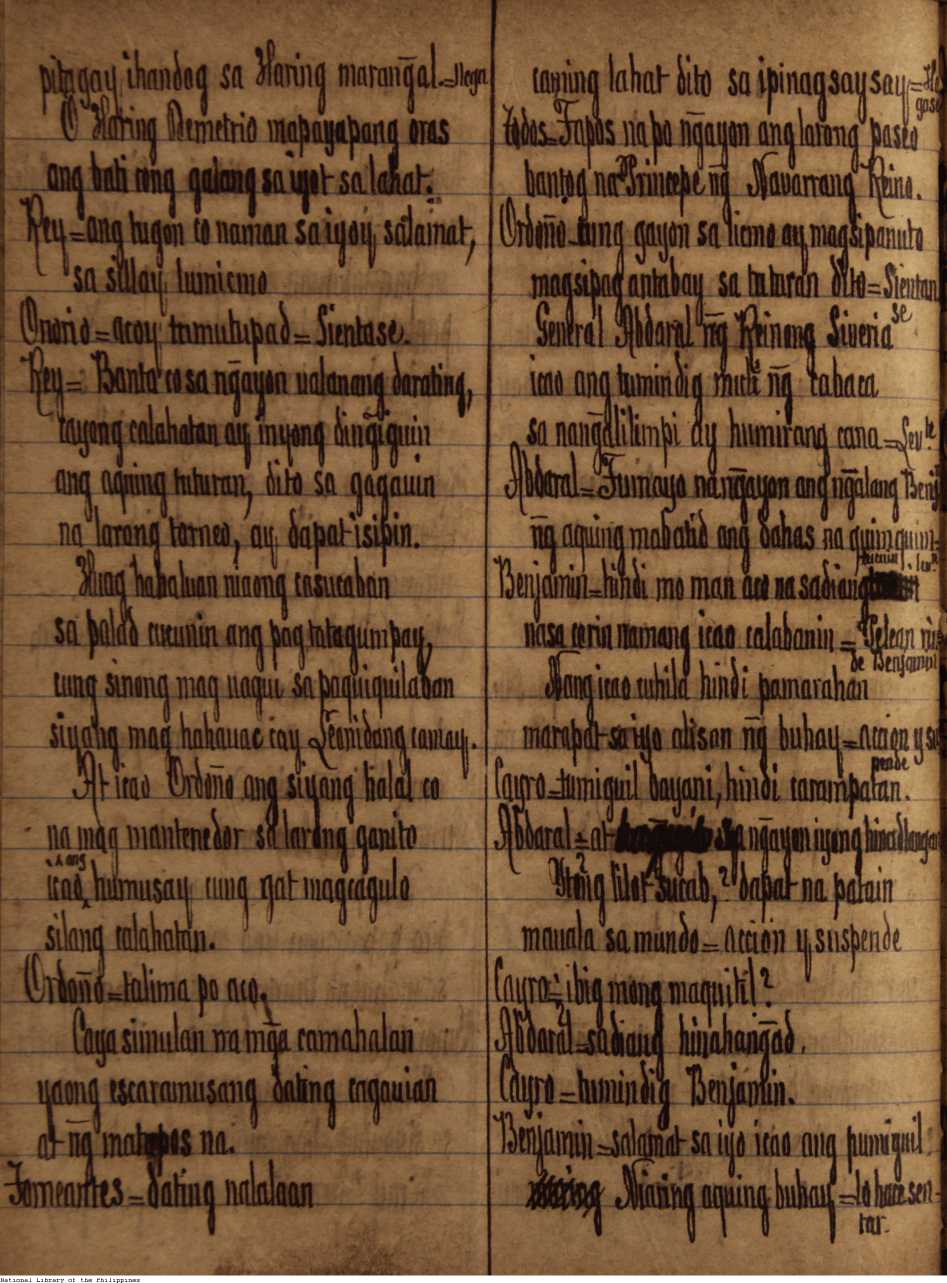 pitagay, ihandog sa Haring maran̄gal = Llega
O Haring Demetrio mapayapang oras
ang bati cong galang sa iyo't sa lahat.
Rey = ang tugon co naman sa iyoy, salamat,
sa sillay lumicmo
Onorio = acoy tumutupad = Sientase.
Rey = Banta co sa n̄gayon ualanang darating,
cayong calahatan ay inyong din̄giguin
ang aquing tuturan, dito sa gagauin
na larong torneo, ay dapat isipin.
Huag hahaluan niaong casucaban
sa palad cucunin ang pagtatagumpay,
cung sinong mag uagui sa paquiquilaban
siyang mag hahauac cay Leonidang camay.
At icao Ordoño ang siyang halal co
na mag mantenedor sa larong ganito
icao, ang humusay cung gat magcagulo
silang calahatan.
Ordoño = talima po aco.
Caya simulan na mn̄ga camahalan
yaong escaramusang dating cagauian
at n̄g matapos na.
Torneantes = dating nalalaan
caming lahat dito sa ipinagsaysay =
Todos = Tapos na po n̄gayon ang larong paseo
bantog na Principe n̄g Navarrang Reino.
Ordoño = cung gayon sa licmo ay magsipanuto
magsipag antabay sa tuturan dito = Sientanse
General Abdaral n̄g Reinong Siveria
icao ang tumindig muli n̄g cabaca
sa nan̄galilimpi ay humirang cana =
Abdaral = Tumayo na n̄gayon ang n̄galang Benj
n̄g aquing mabatid ang dahas na
Benjamin = hindi mo man aco na sadiang
nasa corin namang icao calabanin = Pelean
de Benjamin
Nang icao cuhila hindi pamarahan
marapat sa iyo alisan n̄g buhay = accion y suspende
Cayro = tumiguil bayani, hindi carampatan.
Abdaral = at n̄gayon iyong
Itong lilot sucab, dapat na patain
mauala sa mundo = accion y suspende
Cayro = ibig mong maquitil?
Abdaral = sadiang hinahan̄gad.
Cayro = tumindig Benjamin.
Benjamin = salamat sa iyo icao ang pumiguil
Niaring aquing buhay = lo hace sentar.
National Library of the Philippines